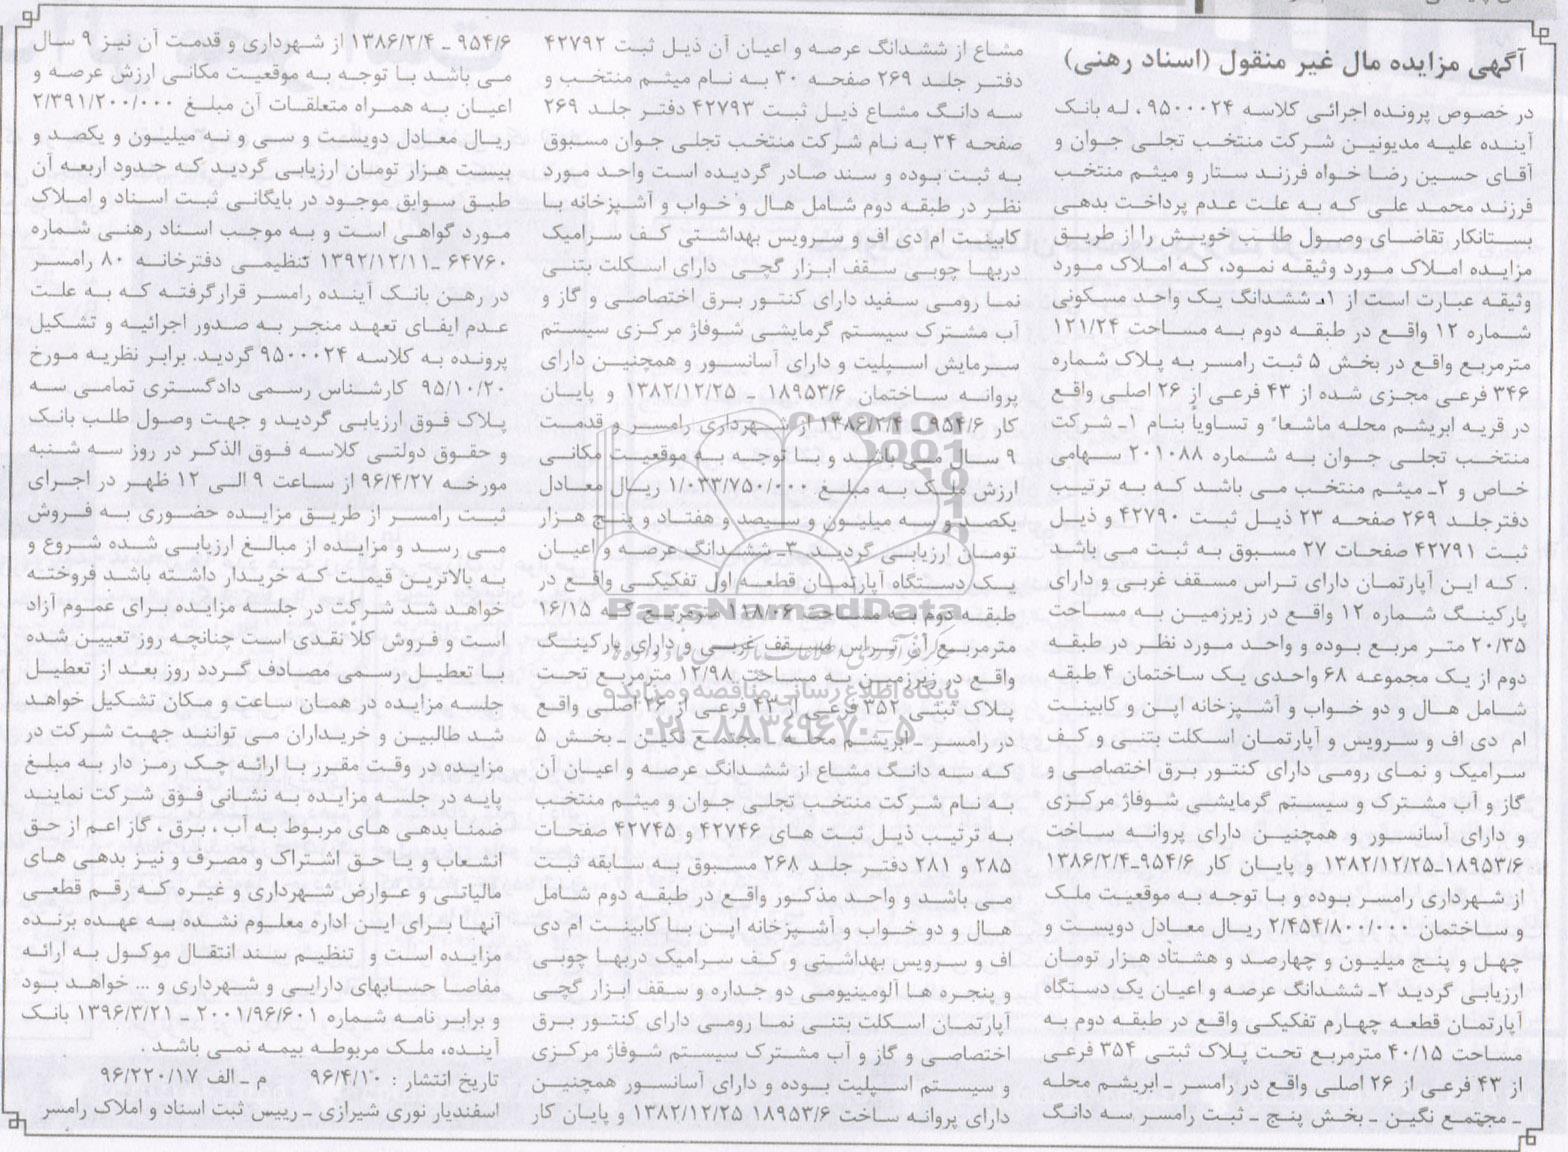 آگهی مزایده مال غیر منقول (اسناد رهنی)
در خصوص پرونده اجرائی کلاسه ۹۵۰۰۰۲۴، له بانک
آینده علیه مدیونین شرکت منتخب تجلی جوان و
آقای حسین رضا خواه فرزند ستار و میثم منتخب
فرزند محمد علی که به علت عدم پرداخت بدهی
بستانکار تقاضای وصول طلب خویش را از طریق
مزایده املاک مورد وثیقه نمود، که املاک مورد
وثیقه عبارت است از ۱ـ ششدانگ یک واحد مسکونی
شماره ۱۲ واقع در طبقه دوم به مساحت ۱۲۱/۲۴
مترمربع واقع در بخش ۵ ثبت رامسر به پلاک شماره
۳۴۶ فرعی مجزی شده از ۴۳ فرعی از ۲۶ اصلی واقع
در قریه ابریشم محله ماشعاً و تساویاً بنام ۱ـ شرکت
منتخب تجلی جوان به شماره ۲۰۱۰۸۸ سهامی
خاص و ۲ـ میثم منتخب می باشد که به ترتیب
دفترجلد ۲۶۹ صفحه ۲۳ ذیل ثبت ۴۲۷۹۰ و ذیل
ثبت ۴۲۷۹۱ صفحات ۲۷ مسبوق به ثبت می باشد
. که این آپارتمان دارای تراس مسقف غربی و دارای
پارکینگ شماره ۱۲ واقع در زیرزمین به مساحت
۲۰/۳۵ متر مربع بوده و واحد مورد نظر در طبقه
دوم از یک مجموعه ۶۸ واحدی یک ساختمان ۴ طبقه
شامل هال و دو خواب و آشپزخانه اپن و کابینت
ام دی اف و سرویس و آپارتمان اسکلت بتنی و کف
سرامیک و نمای رومی دارای کنتور برق اختصاصی و
گاز و آب مشترک و سیستم گرمایشی شوفاژ مرکزی
و دارای آسانسور و همچنین دارای پروانه ساخت
۱۸۹۵۳/۶ـ۱۳۸۲/۱۲/۲۵ و پایان کار ۹۵۴/۶ـ۱۳۸۶/۲/۴
از شهرداری رامسر بوده و با توجه به موقعیت ملک
و ساختمان ۲/۴۵۴/۸۰۰/۰۰۰ ریال معادل دویست و
چهل و پنج میلیون و چهارصد و هشتاد هزار تومان
ارزیابی گردید ۲ـ ششدانگ عرصه و اعیان یک دستگاه
آپارتمان قطعه چهارم تفکیکی واقع در طبقه دوم به
مساحت ۴۰/۱۵ مترمربع تحت پلاک ثبتی ۳۵۴ فرعی
از ۴۳ فرعی از ۲۶ اصلی واقع در رامسر ـ ابریشم محله
ـ مجتمع نگین ـ بخش پنج ـ ثبت رامسر سه دانگ
مشاع از ششدانگ عرصه و اعیان آن ذیل ثبت ۴۲۷۹۲
دفتر جلد ۲۶۹ صفحه ۳۰ به نام میثم منتخب و
سه دانگ مشاع ذیل ثبت ۴۲۷۹۳ دفتر جلد ۲۶۹
صفحه ۳۴ به نام شرکت منتخب تجلی جوان مسبوق
به ثبت بوده و سند صادر گردیده است واحد مورد
نظر در طبقه دوم شامل هال و خواب و آشپزخانه با
کابینت ام دی اف و سرویس بهداشتی کف سرامیک
دربها چوبی سقف ابزار گچی دارای اسکلت بتنی
نما رومی سفید دارای کنتور برق اختصاصی و گاز و
آب مشترک سیستم گرمایشی شوفاژ مرکزی سیستم
سرمایش اسپلیت و دارای آسانسور و همچنین دارای
پروانه ساختمان ۱۸۹۵۳/۶ ـ ۱۳۸۲/۱۲/۲۵ و پایان
کار ۹۵۴/۶ ـ ۱۳۸۶/۲/۴ از شهرداری رامسر و قدمت
۹ سال می باشد و با توجه به موقعیت مکانی
ارزش ملک به مبلغ ۱/۰۳۳/۷۵۰/۰۰۰ ریال معادل
یکصد و سه میلیون و سیصد و هفتاد و پنج هزار
تومان ارزیابی گردید ۳ـ ششدانگ عرصه و اعیان
یک دستگاه آپارتمان قطعه اول تفکیکی واقع در
طبقه دوم به مساحت مترمربع که ۱۶/۱۵
مترمربع آن تراس مسقف غربی و دارای پارکینگ
واقع در زیرزمین به مساحت ۱۲/۹۸ مترمربع تحت
پلاک ثبتی ۳۵۲ فرعی از ۴۳ فرعی از ۲۶ اصلی واقع
در رامسر ـ ابریشم محله ـ مجتمع نگین ـ بخش ۵
که سه دانگ مشاع از ششدانگ عرصه و اعیان آن
به نام شرکت منتخب تجلی جوان و میثم منتخب
به ترتیب ذیل ثبت های ۴۲۷۴۶ و ۴۲۷۴۵ صفحات
۲۸۵ و ۲۸۱ دفتر جلد ۲۶۸ مسبوق به سابقه ثبت
می باشد و واحد مذکور واقع در طبقه دوم شامل
هال و دو خواب و آشپزخانه اپن با کابینت ام دی
اف و سرویس بهداشتی و کف سرامیک دربها چوبی
و پنجره ها آلومینیومی دو جداره و سقف ابزار گچی
آپارتمان اسکلت بتنی نما رومی دارای کنتور برق
اختصاصی و گاز و آب مشترک سیستم شوفاژ مرکزی
و سیستم اسپلیت بوده و دارای آسانسور همچنین
دارای پروانه ساخت ۱۸۹۵۳/۶ ۱۳۸۲/۱۲/۲۵ و پایان کار
۹۵۴/۶ ـ ۱۳۸۶/۲/۴ از شهرداری و قدمت آن نیز ۹ سال
می باشد با توجه به موقعیت مکانی ارزش عرصه و
اعیان به همراه متعلقات آن مبلغ ۲/۳۹۱/۲۰۰/۰۰۰
ریال معادل دویست و سی و نه میلیون و یکصد و
بیست هزار تومان ارزیابی گردید که حدود اربعه آن
طبق سوابق موجود در بایگانی ثبت اسناد و املاک
مورد گواهی است و به موجب اسناد رهنی شماره
۶۴۷۶۰ ـ۱۳۹۲/۱۲/۱۱ تنظیمی دفترخانه ۸۰ رامسر
در رهن بانک آینده رامسر قرارگرفته که به علت
عدم ایفای تعهد منجر به صدور اجرائیه و تشکیل
پرونده به کلاسه ۹۵۰۰۰۲۴ گردید. برابر نظریه مورخ
۹۵/۱۰/۲۰ کارشناس رسمی دادگستری تمامی سه
پلاک فوق ارزیابی گردید و جهت وصول طلب بانک
و حقوق دولتی کلاسه فوق الذکر در روز سه شنبه
مورخه ۹۶/۴/۲۷ از ساعت ۹ الی ۱۲ ظهر در اجرای
ثبت رامسر از طریق مزایده حضوری به فروش
می رسد و مزایده از مبالغ ارزیابی شده شروع و
به بالاترین قیمت که خریدار داشته باشد فروخته
خواهد شد شرکت در جلسه مزایده برای عموم آزاد
است و فروش کلا نقدی است چنانچه روز تعیین شده
با تعطیل رسمی مصادف گردد روز بعد از تعطیل
جلسه مزایده در همان ساعت و مکان تشکیل خواهد
شد طالبین و خریداران می توانند جهت شرکت در
مزایده در وقت مقرر با ارائه چک رمز دار به مبلغ
پایه در جلسه مزایده به نشانی فوق شرکت نمایند
ضمنا بدهی های مربوط به آب ، برق ، گاز اعم از حق
انشعاب و یا حق اشتراک و مصرف و نیز بدهی های
مالیاتی و عوارض شهرداری و غیره که رقم قطعی
آنها برای این اداره معلوم نشده به عهده برنده
مزایده است و تنظیم سند انتقال موکول به ارائه
مفاصا حسابهای دارایی و شهرداری و ... خواهد بود
و برابر نامه شماره ۲۰۰۱/۹۶/۶۰۱ ـ ۱۳۹۶/۳/۲۱ بانک
آینده، ملک مربوطه بیمه نمی باشد .
تاریخ انتشار : ۹۶/۴/۱۰ م ـ الف ۹۶/۲۲۰/۱۷
اسفندیار نوری شیرازی ـ رییس ثبت اسناد و املاک رامسر
ParsNamadData
پایگاه اطلاع رسانی مناقصه و مزایده
۰۲۱-۸۸۳۴۹۶۷۰-۵